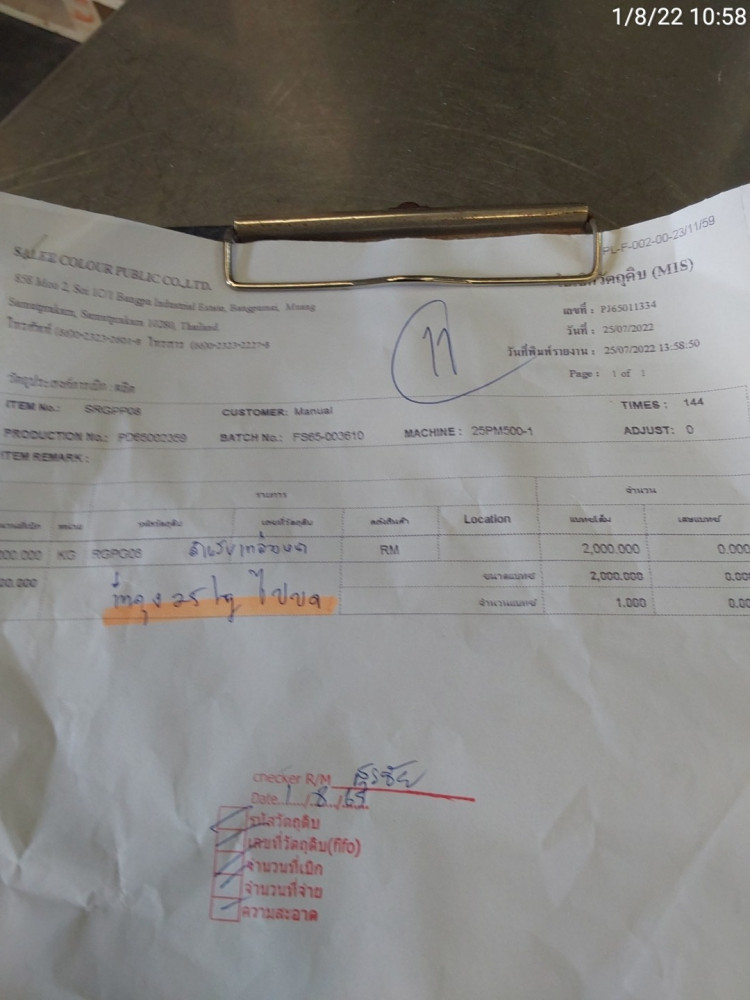 1/8/22 10:58
PL-F-002-00-23/11/59
SALEE COLOUR PUBLIC CO.,LTD.
858 Moo 2, Soi 1C/1 Bangpu Industrial Estate, Bangpumai, Muang
Samutprakarn, Samutprakarn 10280, Thailand
โทรศัพท์ (66)0-2323-2601-8 โทรสาร (66)0-2323-2227-8
วัตถุดิบ (MIS)
เลขที่ : PJ65011334
วันที่ : 25/07/2022
วันที่พิมพ์รายงาน : 25/07/2022 13:58:50
Page : 1 of 1
11
วัตถุประสงค์การเบิก : ผลิต
ITEM No.: SRGPP08 CUSTOMER: Manual TIMES : 144
PRODUCTION No.: PD65002359 BATCH No.: FS65-003610 MACHINE : 25PM500-1 ADJUST: 0
ITEM REMARK :
รายการ จำนวน
หน่วย รหัสวัตถุดิบ เลขที่วัตถุดิบ คลังสินค้า Location แบทช์เต็ม เศษแบทช์
000.000 KG RGPG08 RM 2,000.000 0.000
00.000 ขนาดแบทช์ 2,000.000 0.00
จำนวนแบทช์ 1.000 0.00
checker R/M สุรชัย
Date 1/8/65
รหัสวัตถุดิบ
เลขที่วัตถุดิบ(fifo)
จำนวนที่เบิก
จำนวนที่จ่าย
ความสะอาด